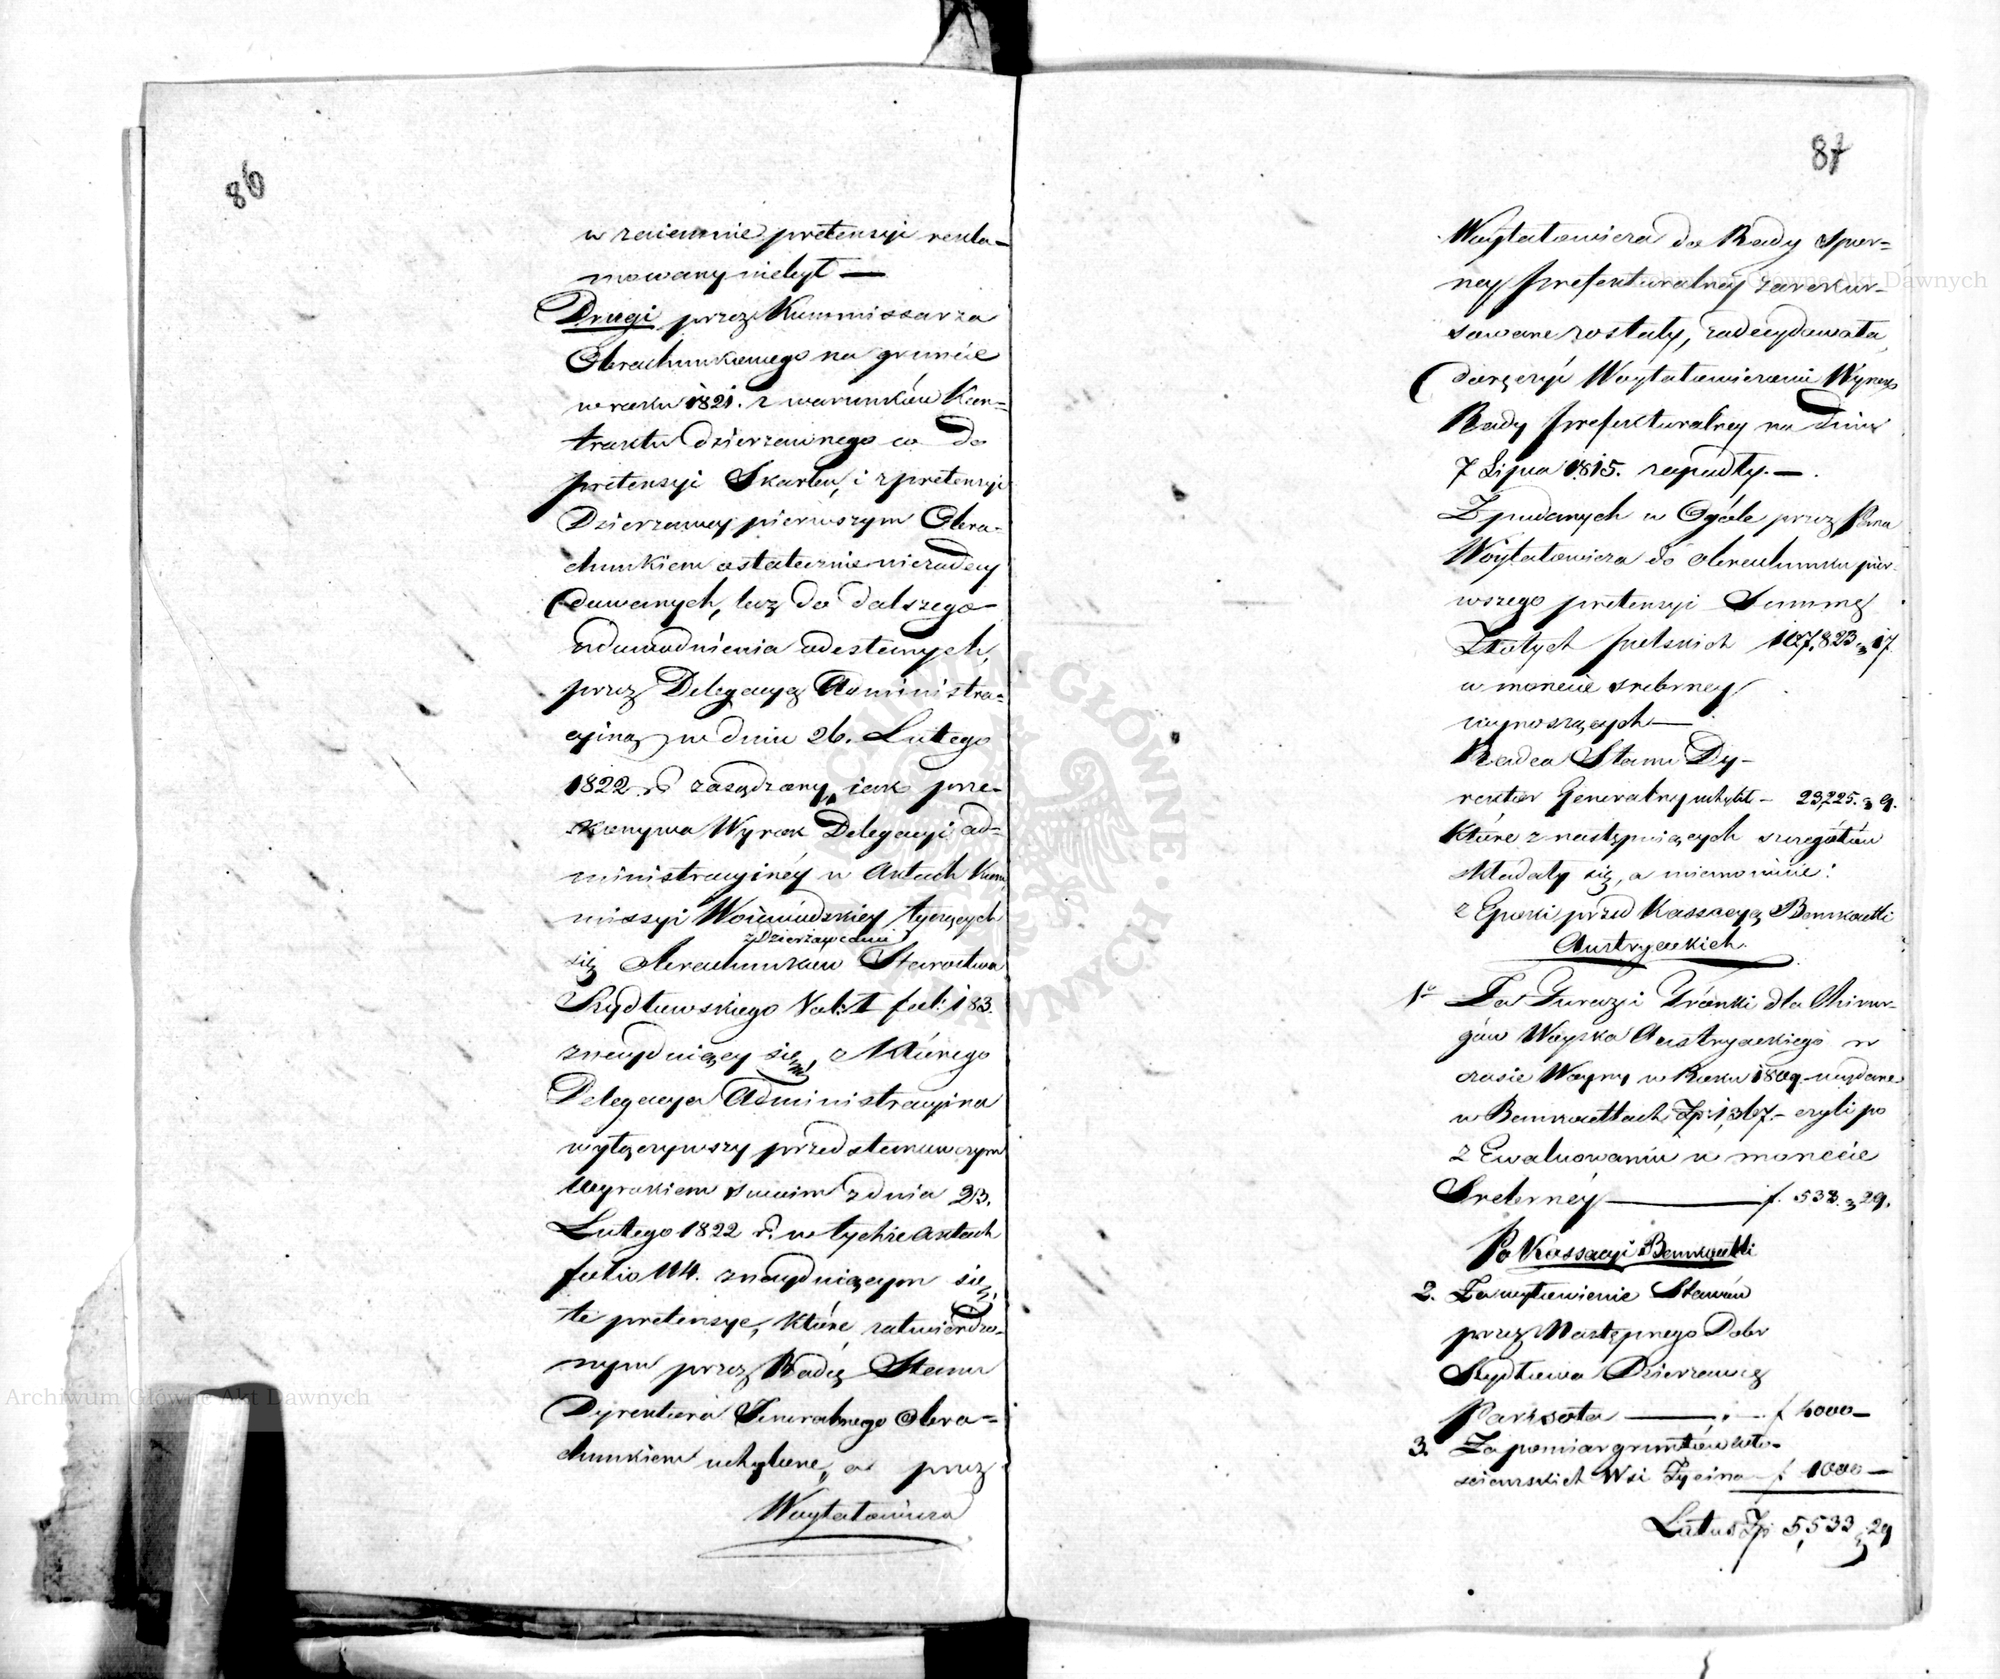 86
w zaiemnie pretensyi rekla-
mowany niebył —
Drugi przez Kommissarza
Obrachunkowego na gruncie
w roku 1821. z warunków Kon-
traktu dzierzawnego co do
pretensyi Skarbu, i z pretensyi
Dzierzawcy pierwszym Obra-
chunkiem ostatecznie niezadecy
dowanych, lecz do dalszego
udowodnienia odesłanych,
przez Delegacyą Administra-
cyiną w dniu 26. Lutego
1822 r. zasądzony, iak prze-
konywa Wyrok Delegacyi ad-
ministracyinéy w Aktach Kom-
missyi Woiewódzkiey tyczących
z Dzierzawcami
się Obrachunków Starostwa
Szydłowskiego Vol: I fol: 183.
znayduiący się, z którego
Delegacya Administracyina
wyłączywszy przedstanowczym
Wyrokiem swoim z dnia 23.
Lutego 1822 r. w tychże aktach
folio 114. znayduiącym się,
te pretensye, które zatwierdzo-
nym przez Radcę Stanu
Dyrektora Generalnego Obra-
chunkiem uchylone, a przez
Woytatowicza
87
Woytatowicza do Rady Spor-
ney Prefekturalney zarekur-
sowane zostały, zadecydowała,
doręczyć Woytatowiczowi Wyrok
Rady Prefekturalney na dniu
7 Lipca 1815. zapadły. —
Z podanych w Ogóle przez Pana
Woytatowicza do obrachunku pier-
wszego pretensyi Summę
Złotych polskich 107,823 „ 17
w monecie srebrney
wynoszących —
Radca Stanu Dy-
rektor Generalny uchylił — 23,225. „ 9.
Które z następuiących szczegółów
składały się, a mianowicie:
z Epoki przed Kassacyą Bankocetli
Austryackich.
1o Za Furazji Tranki dla Chirur-
gów Woyska Austryackiego w
czasie Woyny w Roku 1809 wydane
w Bankocetlach Zp: 1,367.— czyli po
z Ewaluowaniu w monecie
Srebrnéy — f. 533. „ 29.
Po Kassacyi Bankocetli
2. Za wyławienie Stawów
przez Następnego Dóbr
Szydłowa Dzierzawcę
Parzsota — f 4000 —
3. Za pomiar gruntów wło-
ściańskich Wsi Życina — f 1000 —
Latus Zp: 5,533 „ 29
Archiwum Główne Akt Dawnych
Archiwum Główne Akt Dawnych
ARCHIWUM GŁÓWNE AKT DAWNYCH